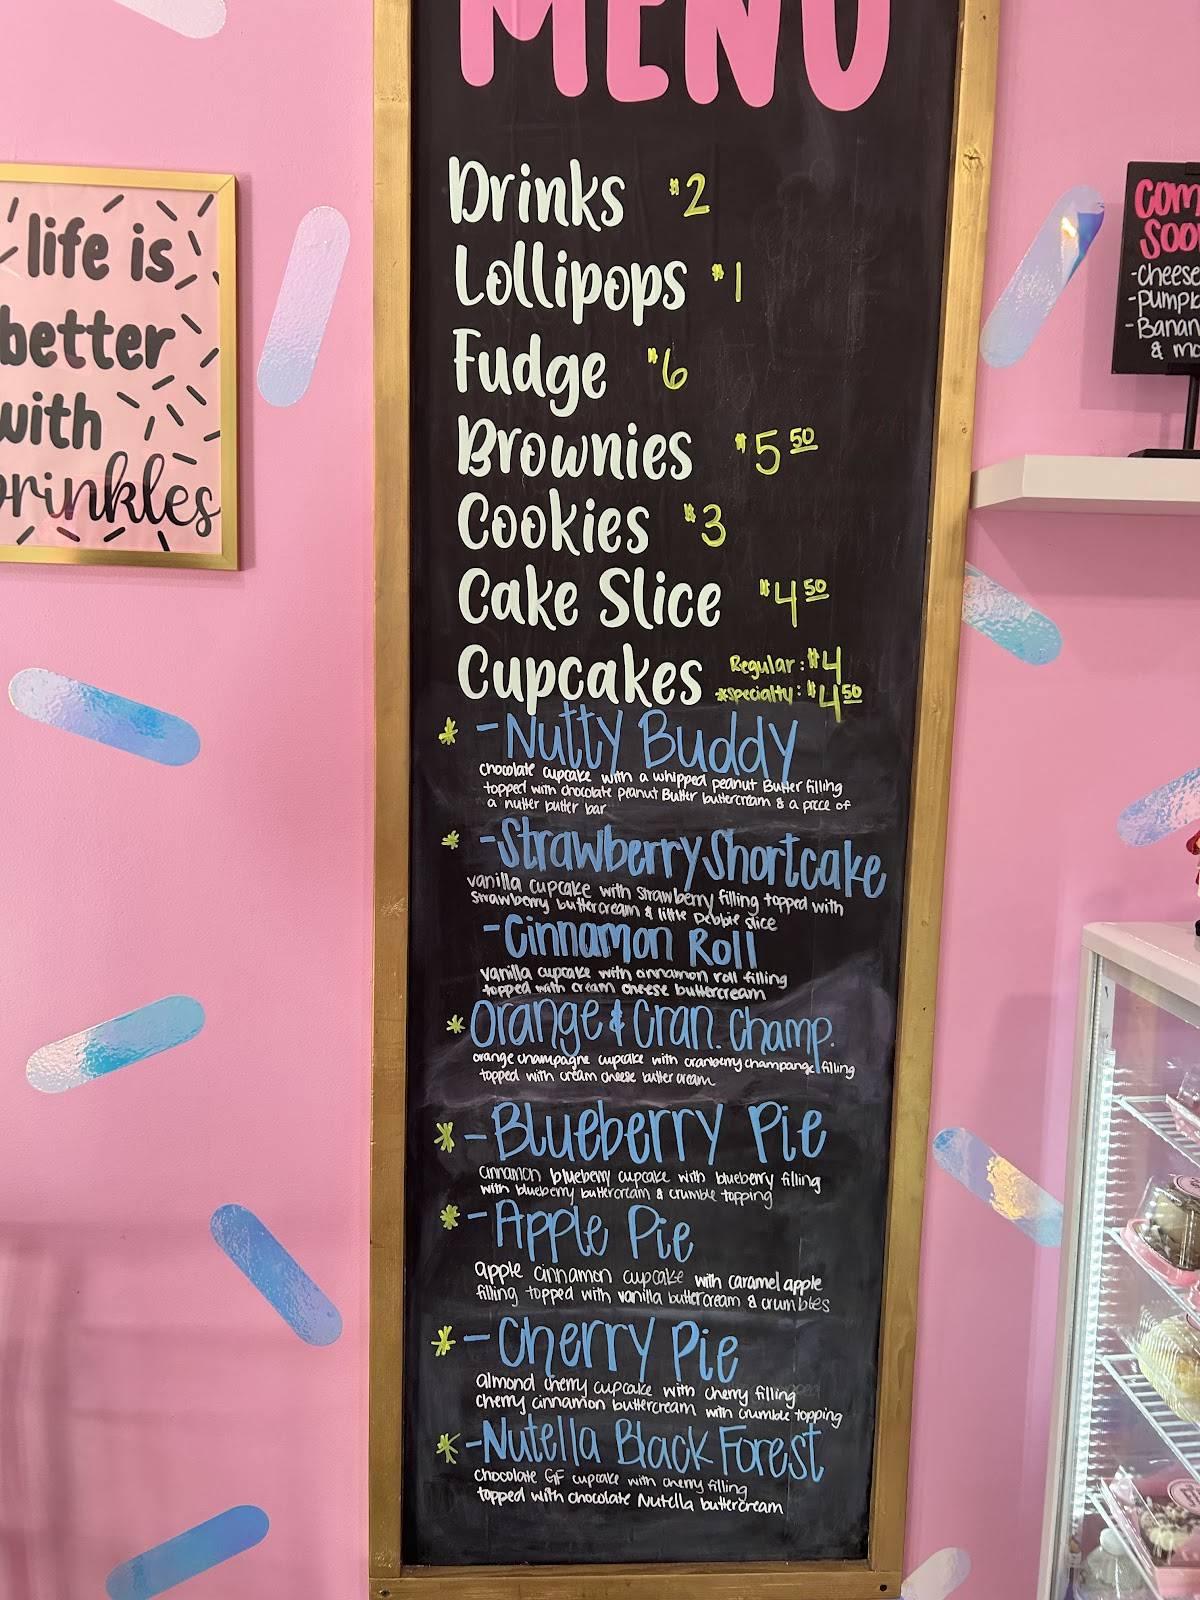 MENU
Drinks $2
Lollipops $1
Fudge $6
Brownies $5 50
Cookies $3
Cake Slice $4 50
Cupcakes Regular: $4
*Specialty: $4 50
* -Nutty Buddy
chocolate cupcake with a whipped peanut Butter filling
topped with chocolate peanut Butter buttercream & a piece of
a nutter butter bar
* -Strawberry Shortcake
vanilla cupcake with strawberry filling topped with
strawberry buttercream & little Debbie slice
-Cinnamon Roll
vanilla cupcake with cinnamon roll filling
topped with cream cheese buttercream
* Orange & Cran. Champ.
orange champagne cupcake with cranberry champange filling
topped with cream cheese butter cream
* -Blueberry Pie
cinnamon blueberry cupcake with blueberry filling
with blueberry buttercream & crumble topping
* -Apple Pie
apple cinnamon cupcake with caramel apple
filling topped with vanilla buttercream & crumbles
* -Cherry Pie
almond cherry cupcake with cherry filling
cherry cinnamon buttercream with crumble topping
* -Nutella Black Forest
chocolate GF cupcake with cherry filling
topped with chocolate Nutella buttercream
life is
better
with
prinkles
Com
Soo
-cheese
-pumpk
-Banan
& mo